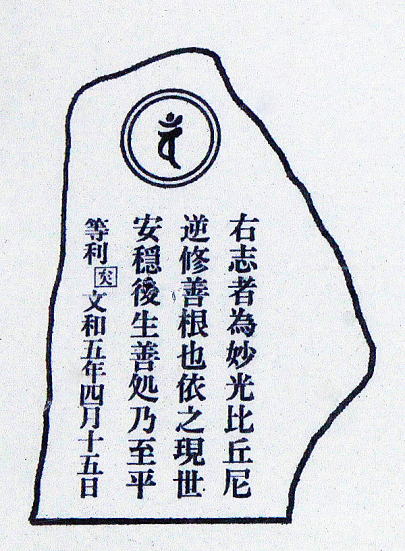 右志者為妙光比丘尼
逆修善根也依之現世
安穏後生善処乃至平
等利矣文和五年四月十五日